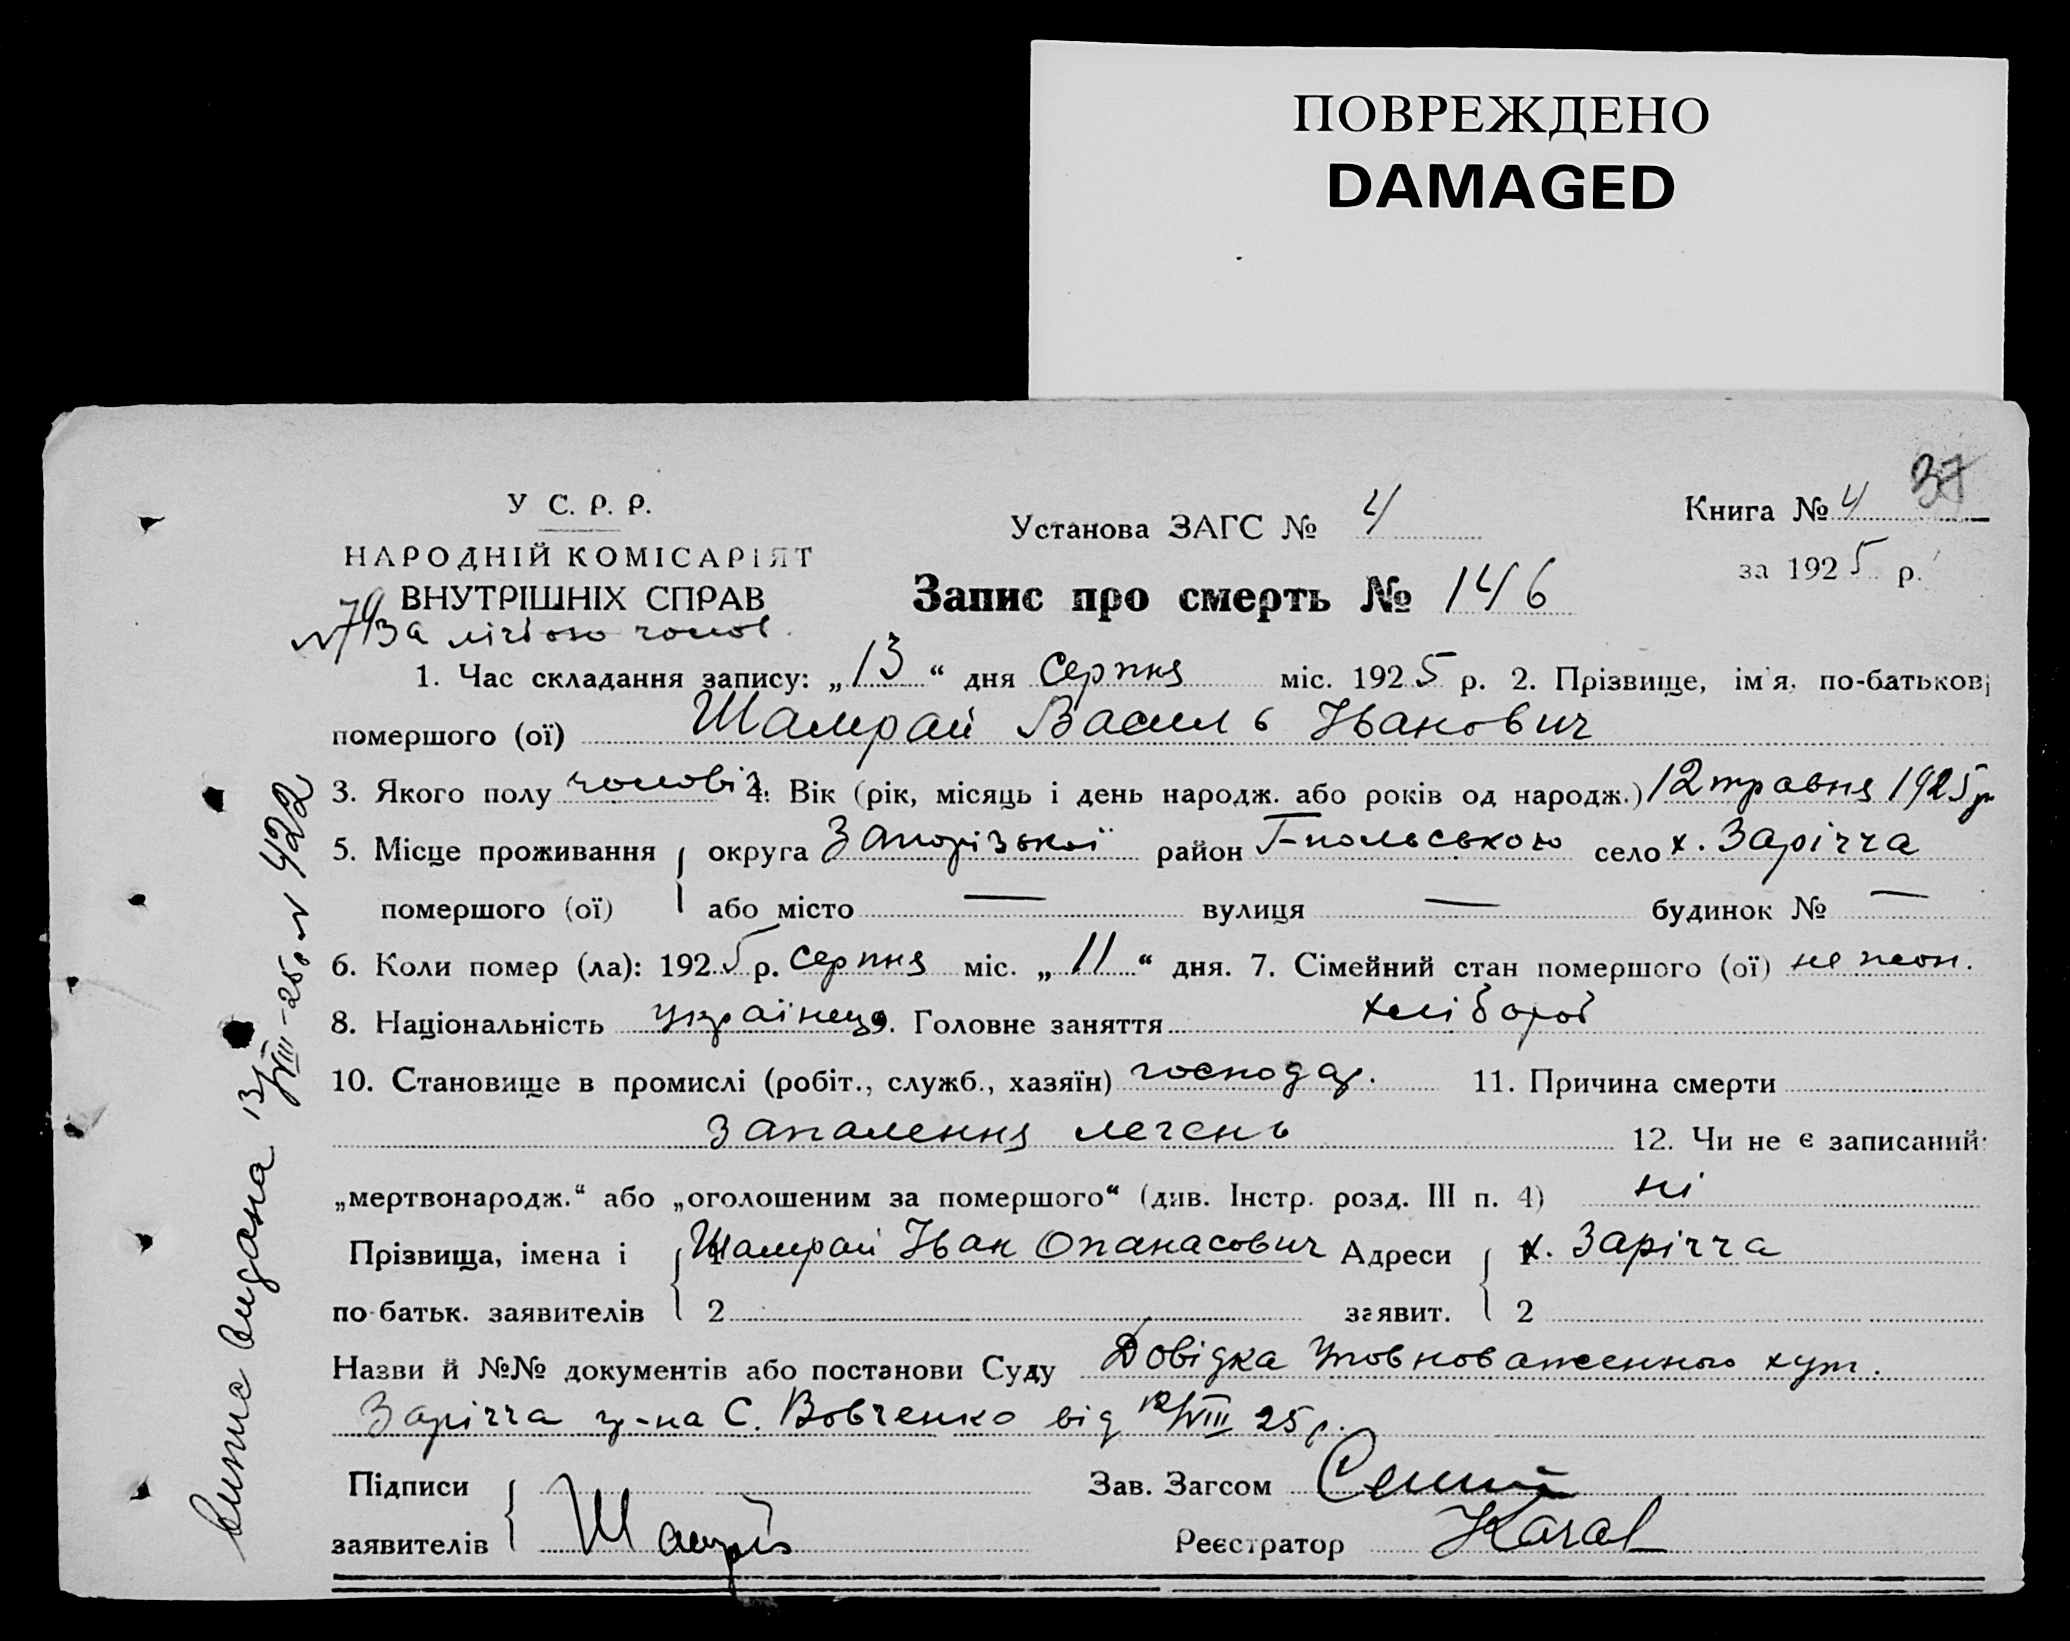 ПОВРЕЖДЕНО
DAMAGED
37
У С. Р. Р.
НАРОДНІЙ КОМІСАРІЯТ
ВНУТРІШНІХ СПРАВ
Установа ЗАГС № 4
Книга № 4
за 1925 р.
Запис про смерть № 146
№ 79 За лічбою чолов.
1. Час складання запису: „13“ дня Серпня міс. 1925 р. 2. Прізвище, ім'я, по-батькові
помершого (ої) Шамрай Василь Іванович
3. Якого полу чоловіч. 4. Вік (рік, місяць і день народж. або років од народж.) 12 травня 1925 р
5. Місце проживання округа Запорізької район Г-польського село х. Зарічча
помершого (ої) або місто — вулиця — будинок № —
6. Коли помер (ла): 1925 р. Серпня міс. „11“ дня. 7. Сімейний стан помершого (ої) не жон.
8. Національність українець 9. Головне заняття хлібороб
10. Становище в промислі (робіт., служб., хазяїн) господар. 11. Причина смерти
запалення легень 12. Чи не є записаний:
„мертвонародж.“ або „оголошеним за помершого“ (див. Інстр. розд. III п. 4) ні
Прізвища, імена і 1 Шамрай Іван Опанасович Адреси 1 х. Зарічча
по-батьк. заявителів 2 заявит. 2
Назви й №№ документів або постанови Суду Довідка Уповноваженного хут.
Зарічча гр-на С. Вовченко від 12/VIII 25 р.
Підписи Зав. Загсом
заявителів Шамрай Реєстратор
Випис видана 13/VIII-25 р. № 422